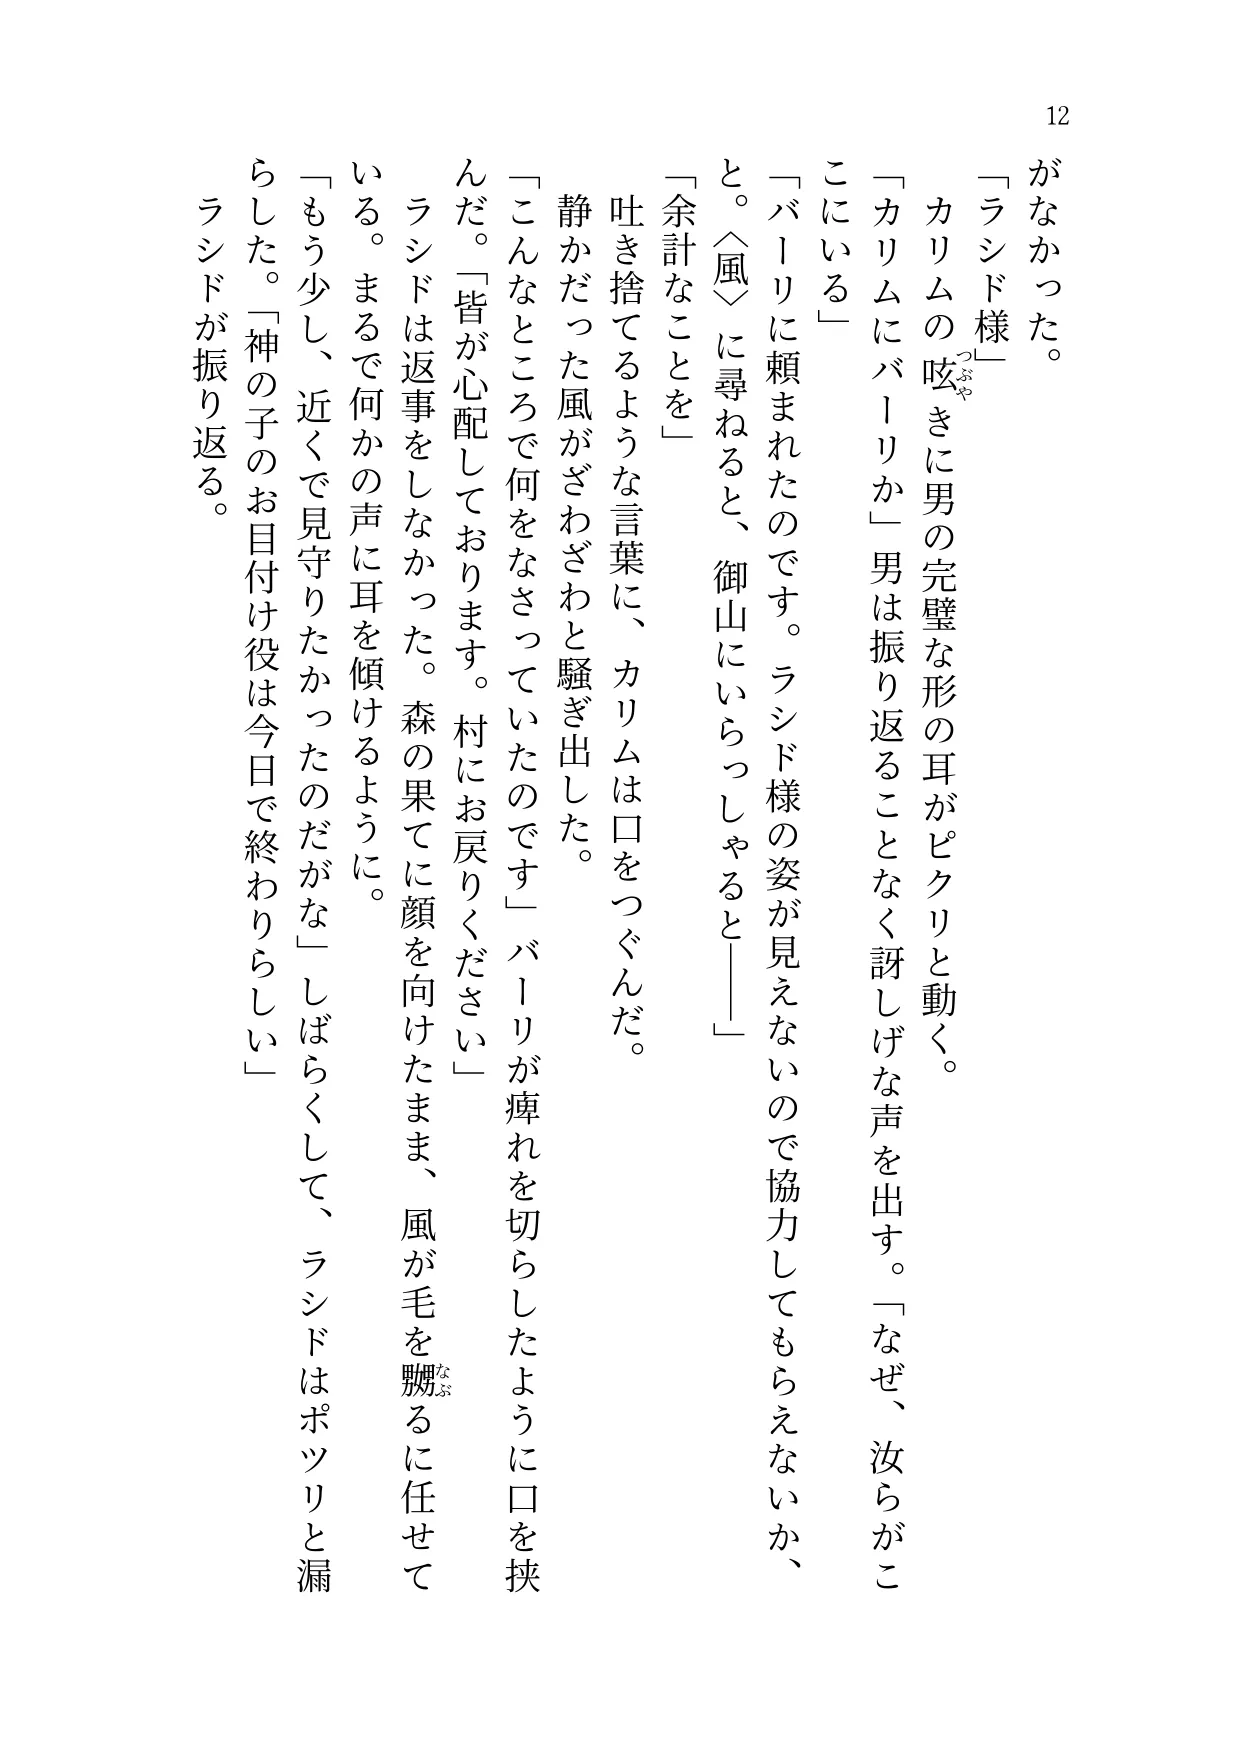 12
がなかった。
「ラシド様」
カリムの呟きに男の完璧な形の耳がピクリと動く。
つぶや
「カリムにバーリか」男は振り返ることなく訝しげな声を出す。「なぜ、汝らがこ
こにいる」
「バーリに頼まれたのです。ラシド様の姿が見えないので協力してもらえないか、
と。〈風〉に尋ねると、御山にいらっしゃると――」
「余計なことを」
吐き捨てるような言葉に、カリムは口をつぐんだ。
静かだった風がざわざわと騒ぎ出した。
「こんなところで何をなさっていたのです」バーリが痺れを切らしたように口を挟
んだ。「皆が心配しております。村にお戻りください」
ラシドは返事をしなかった。森の果てに顔を向けたまま、風が毛を嬲るに任せて
なぶ
いる。まるで何かの声に耳を傾けるように。
「もう少し、近くで見守りたかったのだがな」しばらくして、ラシドはポツリと漏
らした。「神の子のお目付け役は今日で終わりらしい」
ラシドが振り返る。